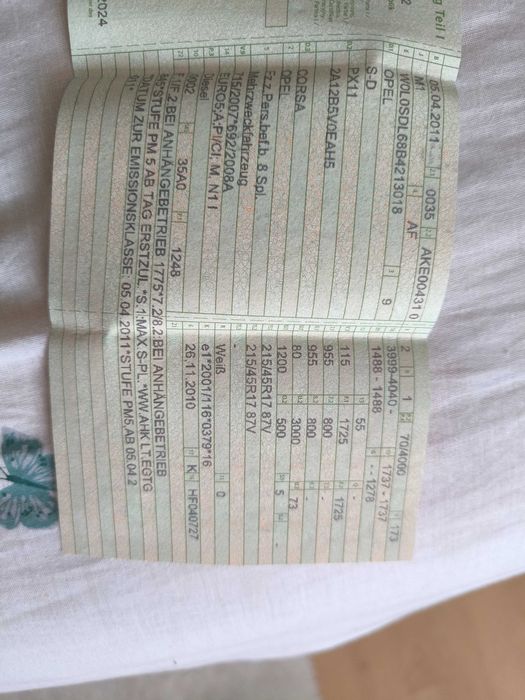 g Teil I
2024
05.04.2011 0035 AKE00431 0
M1 AF
W0L0SDL68B4213018 9
OPEL
S-D
PX11
2A12B5V0EAH5
CORSA
OPEL
Fz.z.Pers.bef.b. 8 Spl.
Mehrzweckfahrzeug
715/2007*692/2008A
EURO5;A;PI/CI; M, N1 I
Diesel
0002 35A0 1248
F.1/F.2:BEI ANHÄNGEBETRIEB 1775*7.2/8.2:BEI ANHÄNGEBETRIEB
*STUFE PM 5 AB TAG ERSTZUL.*S.1:MAX.S-PL.*WW.AHK LT.EGTG
DATUM ZUR EMISSIONSKLASSE: 05.04.2011*STUFE PM5,AB 05.04.2
2 1 70/4000 173
3999-4040 - 1737 - 1737
1488 - 1488 - - 1278
55 -
115 1725 1725
955 800 -
955 800 -
80 3000 73
1200 500 5 -
215/45R17 87V
215/45R17 87V
-
Weiß 0
e1*2001/116*0379*16
26.11.2010 K HF040727